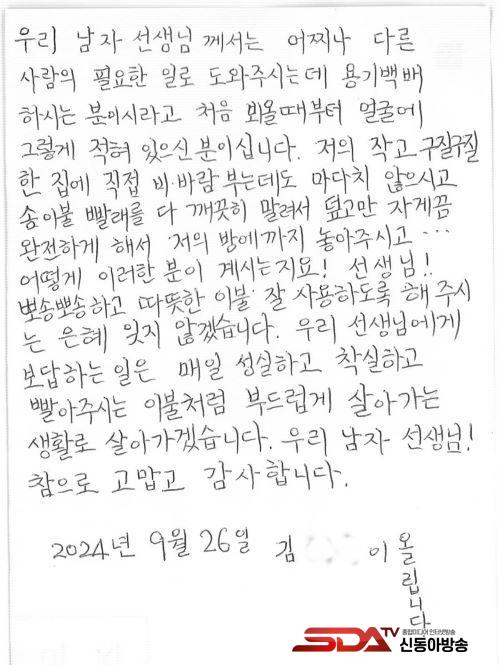 우리 남자 선생님께서는 어찌나 다른
사람의 필요한 일로 도와주시는데 용기백배
하시는 분이시라고 처음 뵈올때부터 얼굴에
그렇게 적혀 있으신 분이십니다. 저의 작고 구질구질
한 집에 직접 비·바람 부는데도 마다치 않으시고
솜이불 빨래를 다 깨끗히 말려서 덮고만 자게끔
완전하게 해서 저의 방에까지 놓아주시고 …
어떻게 이러한 분이 계시는지요! 선생님!!
뽀송뽀송하고 따뜻한 이불 잘 사용하도록 해 주시
는 은혜 잊지 않겠습니다. 우리 선생님에게
보답하는 일은 매일 성실하고 착실하고
빨아주시는 이불처럼 부드럽게 살아가는
생활로 살아가겠습니다. 우리 남자 선생님!
참으로 고맙고 감사합니다.
2024년 9월 26일 김 이 올립니다
SDATV 종합미디어 인터넷방송 신동아방송